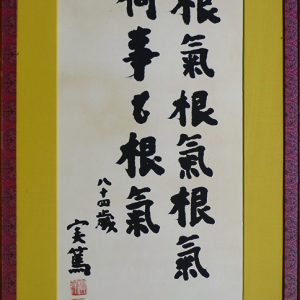 根氣根氣根氣
何事も根氣
八十四歳
実篤